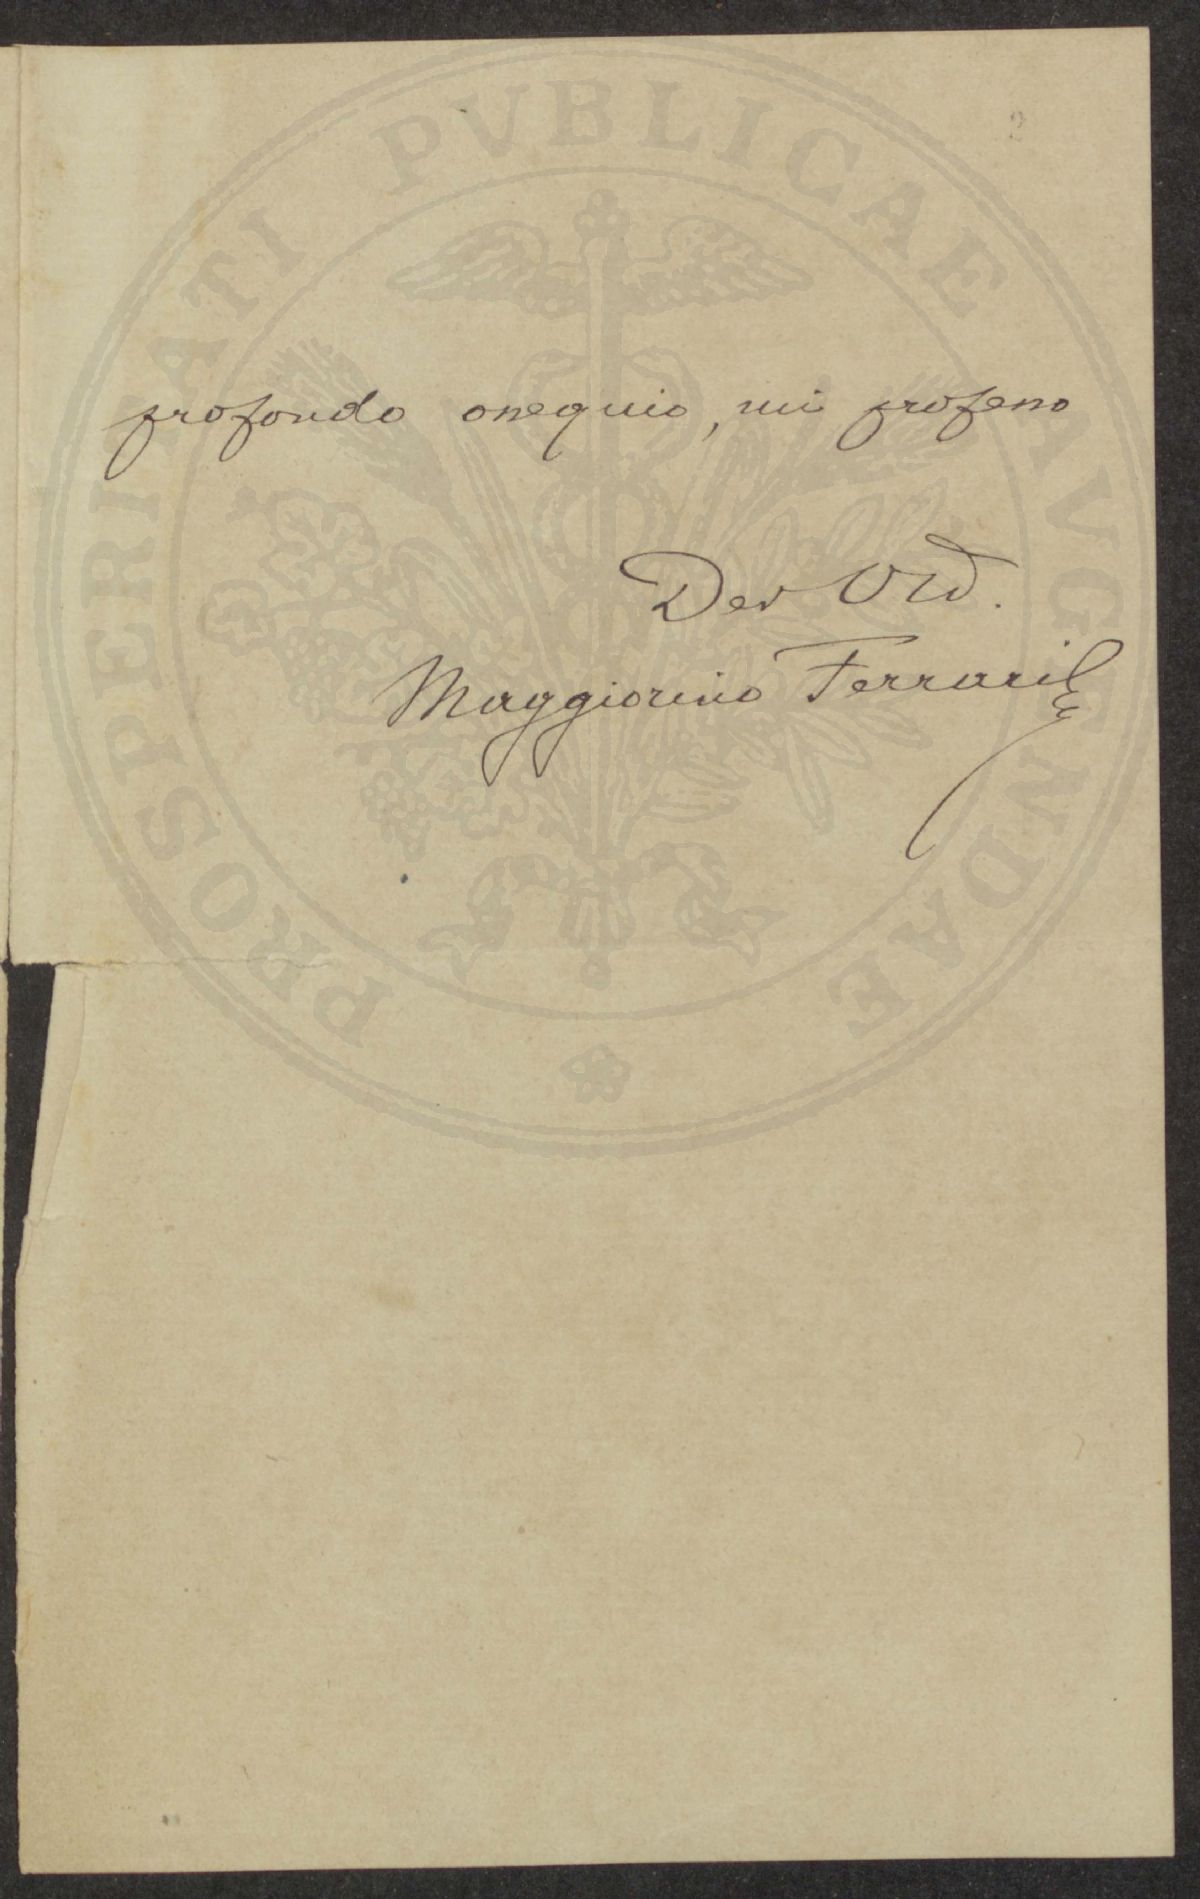 PROSPERITATI PVBLICAE AVGENDAE
2
profondo ossequio, mi professo
Dev
Maggiorino Ferraris